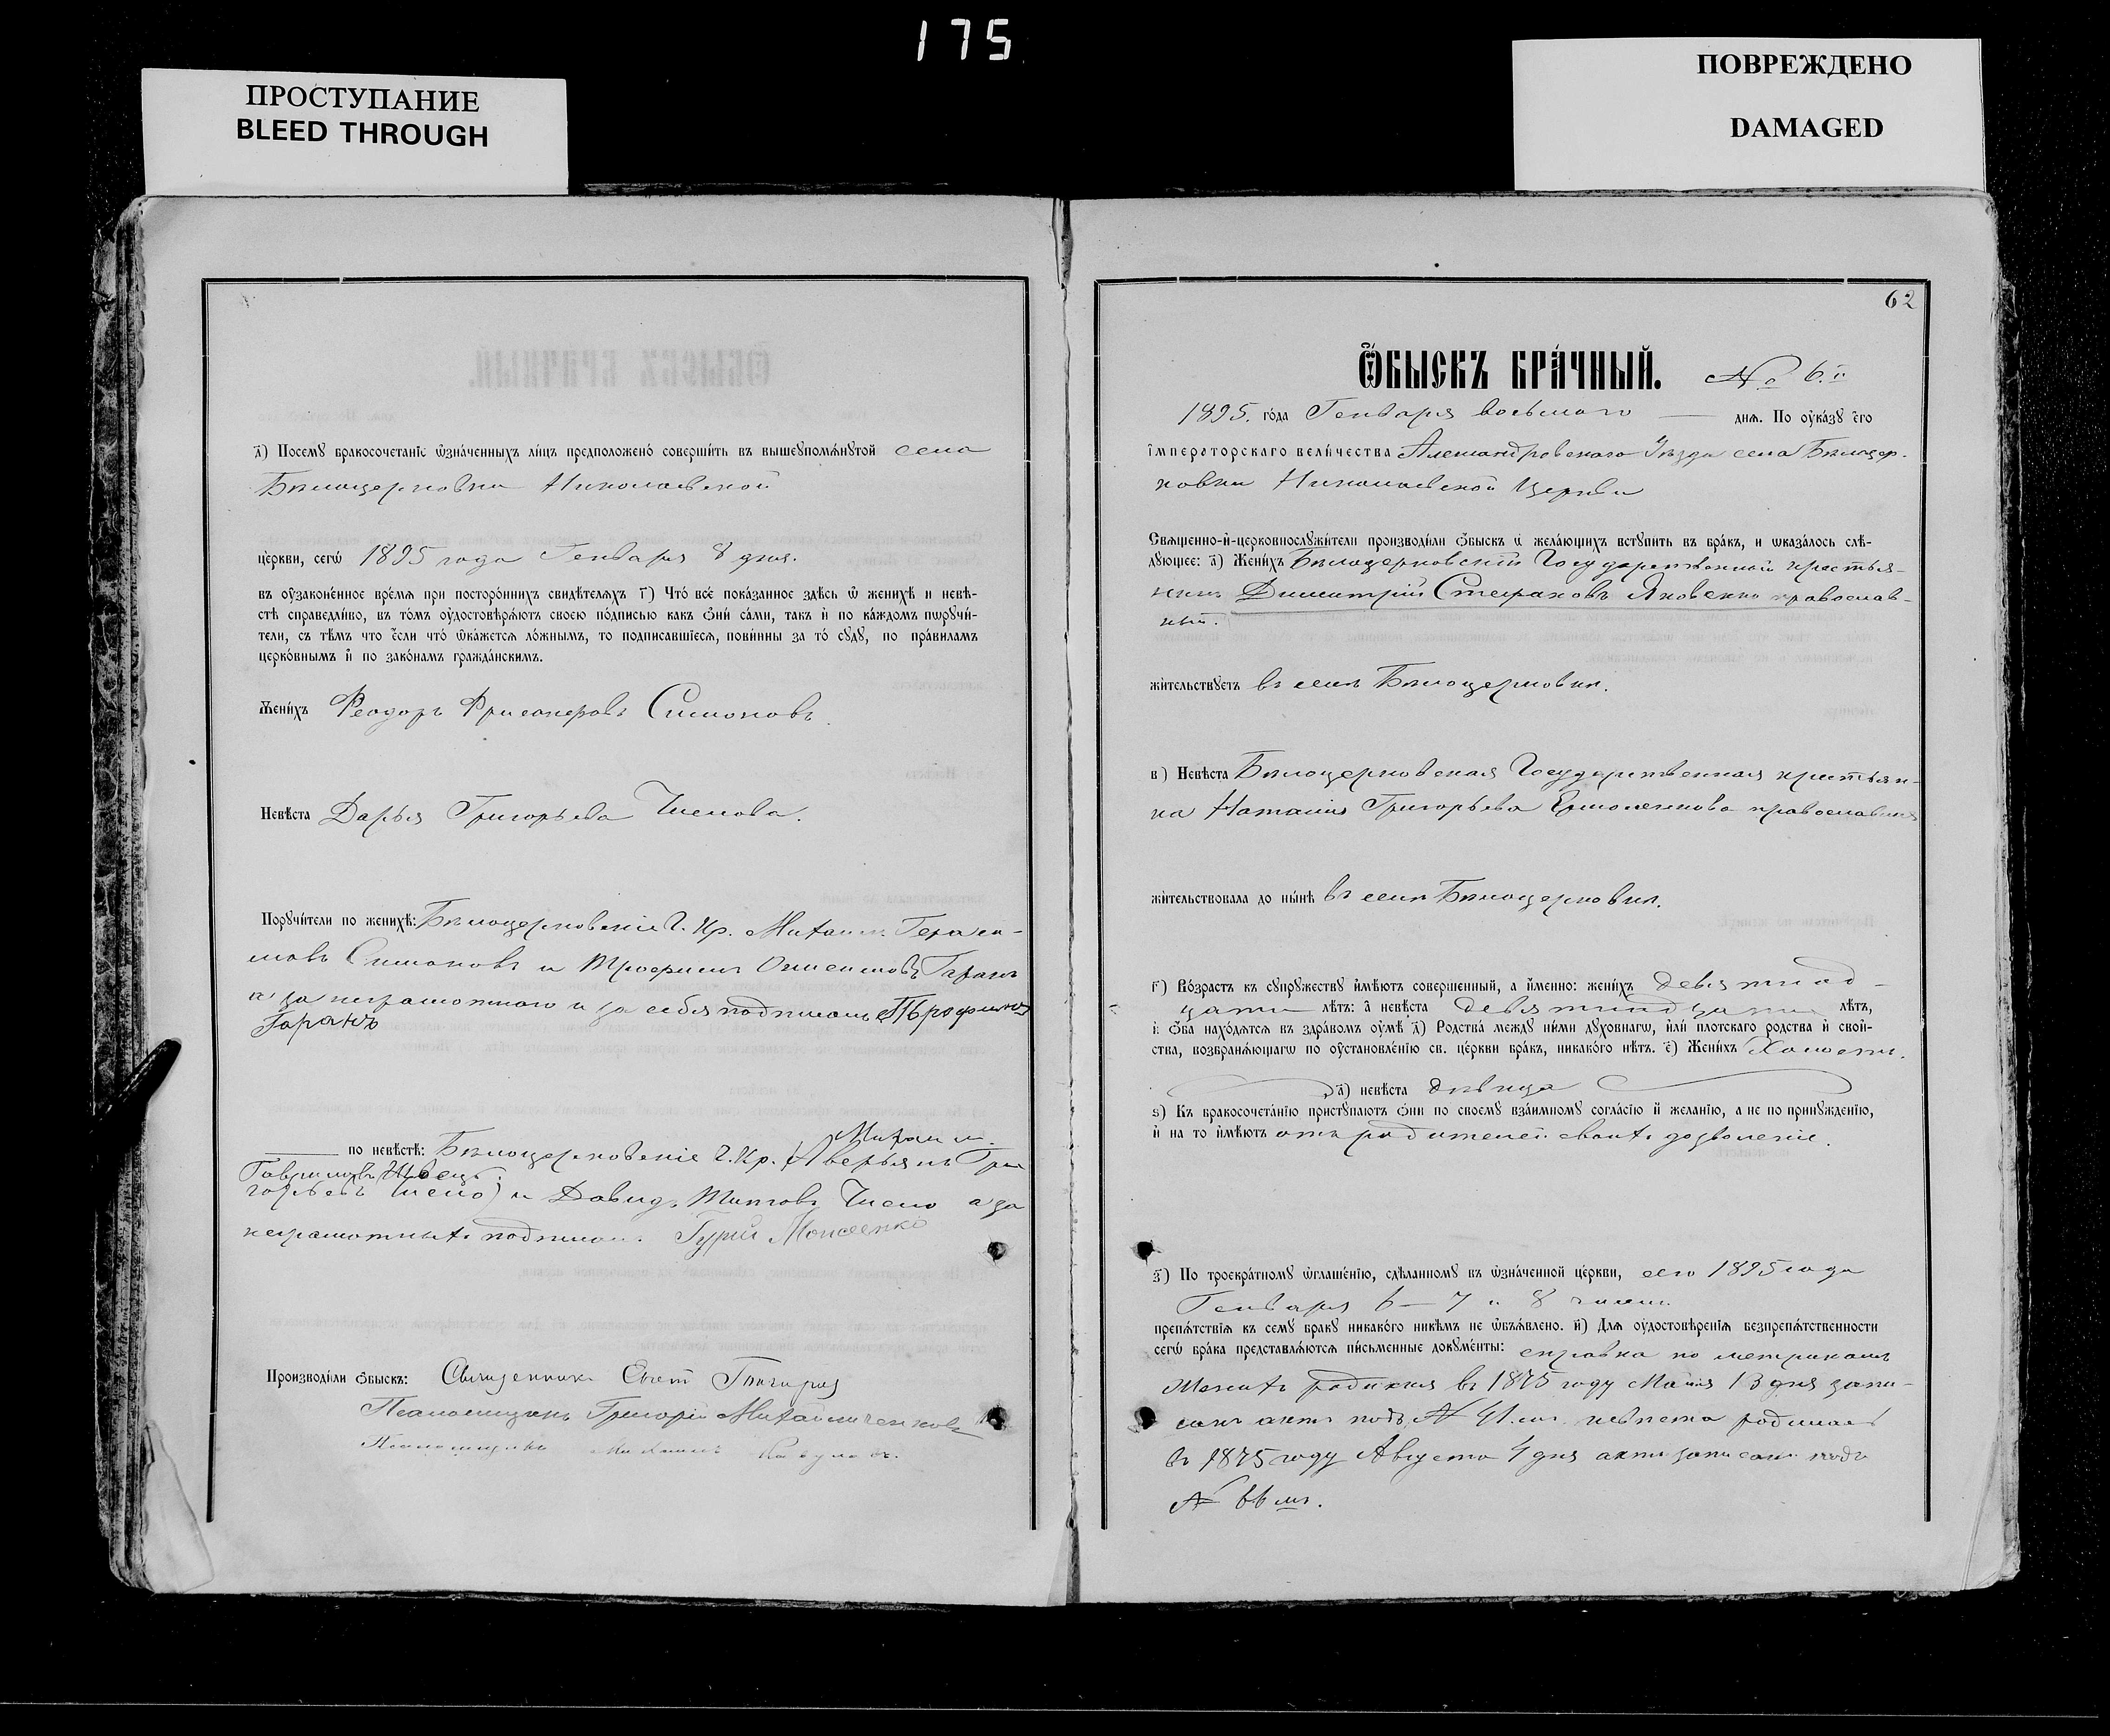 175
ПРОСТУПАНИЕ
BLEED THROUGH
ПОВРЕЖДЕНО
DAMAGED
д҃) Посемꙋ бракосочетаніе ѡзначенныхъ лицъ предположено совершить въ вышеꙋпомянꙋтой села
Бѣлоцерковки Николаевской
церкви, сегѡ 1895 года Генваря 8 дня.
въ оузаконенное время при постороннихъ свидѣтеляхъ г҃) Что все показанное здѣсь ѡ женихѣ и невѣ-
стѣ справедливо, въ томъ оудостовѣряютъ своею подписью какъ ѻни сами, такъ и по каждомъ порꙋчи-
тели, съ тѣмъ что если что ѡкажется ложнымъ, то подписавшїеся, повинны за то сꙋдꙋ, по правиламъ
церковнымъ и по законамъ гражданскимъ.
Женихъ Феодоръ Симоновъ
Невѣста Дарья Григорьева Числова.
Порꙋчители по женихѣ: Бѣлоцерковскіе Г. Кр. Михаилъ Гераси-
мовъ Симоновъ и Трофимъ Гаранъ
а за неграмотнаго и за себя подписалъ Трофимъ
Гаранъ
по невѣстѣ: Бѣлоцерковскіе Г. Кр. (Аверьянъ Гри
Михаилъ
Гавриловъ Швецъ
горьевъ Число) и Давидъ Титовъ Число а за
неграмотныхъ подписалъ Гурій Моисеенко
Производили ѻбыскъ: Священникъ
Псаломщикъ Григорій Михайличенковъ
Псаломщикъ Михаилъ
62
Ѻбыскъ брачный. № 6.й
1895. года Генваря восьмого дня. По оуказꙋ его
императорскаго величества Александровскаго Уѣзда села Бѣлоцер-
ковки Николаевской Церкви
Священно-и-церковнослꙋжители производили ѻбыскъ ѡ желающихъ встꙋпить въ бракъ, и ѡказалось слѣ-
дꙋющее: а҃) Женихъ Бѣлоцерковскій Государственный крестья-
нинъ Димитрій Стефановъ Яковенко православ-
ный.
жительствꙋетъ въ селѣ Бѣлоцерковкѣ.
в҃) Невѣста Бѣлоцерковская Государственная крестьян-
ка Наталія Григорьева Ермоленкова православная
жительствовала до нынѣ въ селѣ Бѣлоцерковкѣ.
г҃) Возрастъ къ сꙋпрꙋжествꙋ имѣютъ совершенный, а именно: женихъ девятнад-
цати лѣтъ: а невѣста девятнадцати лѣтъ,
и ѻба находятся въ здравомъ оумѣ д҃) Родства междꙋ ними дꙋховнагѡ, или плотскаго родства и свой-
ства, возбраняющагѡ по оустановленію св. церкви бракъ, никакого нѣтъ. е҃) Женихъ Холостъ.
а҃) невѣста дѣвица
ѕ҃) Къ бракосочетанію пристꙋпаютъ ѻни по своемꙋ взаимномꙋ согласію и желанію, а не по принꙋжденію,
и на то имѣютъ отъ родителей своихъ дозволеніе.
з҃) По троекратномꙋ ѡглашенію, сдѣланномꙋ въ ѡзначенной церкви, сего 1895 года
Генваря 6 – 7 и 8 чиселъ
препятствія къ семꙋ бракꙋ никакого никѣмъ не ѡбъявлено. и҃) Для оудостовѣренія безпрепятственности
сегѡ брака представляются письменные докꙋменты: справка по метрикамъ
Женихъ родился въ 1875 году Маія 13 дня запи-
санъ актъ подъ № 41.мъ невѣста родилась
въ 1875 году Августа 4 дня актъ записанъ подъ
№ 66 мъ.